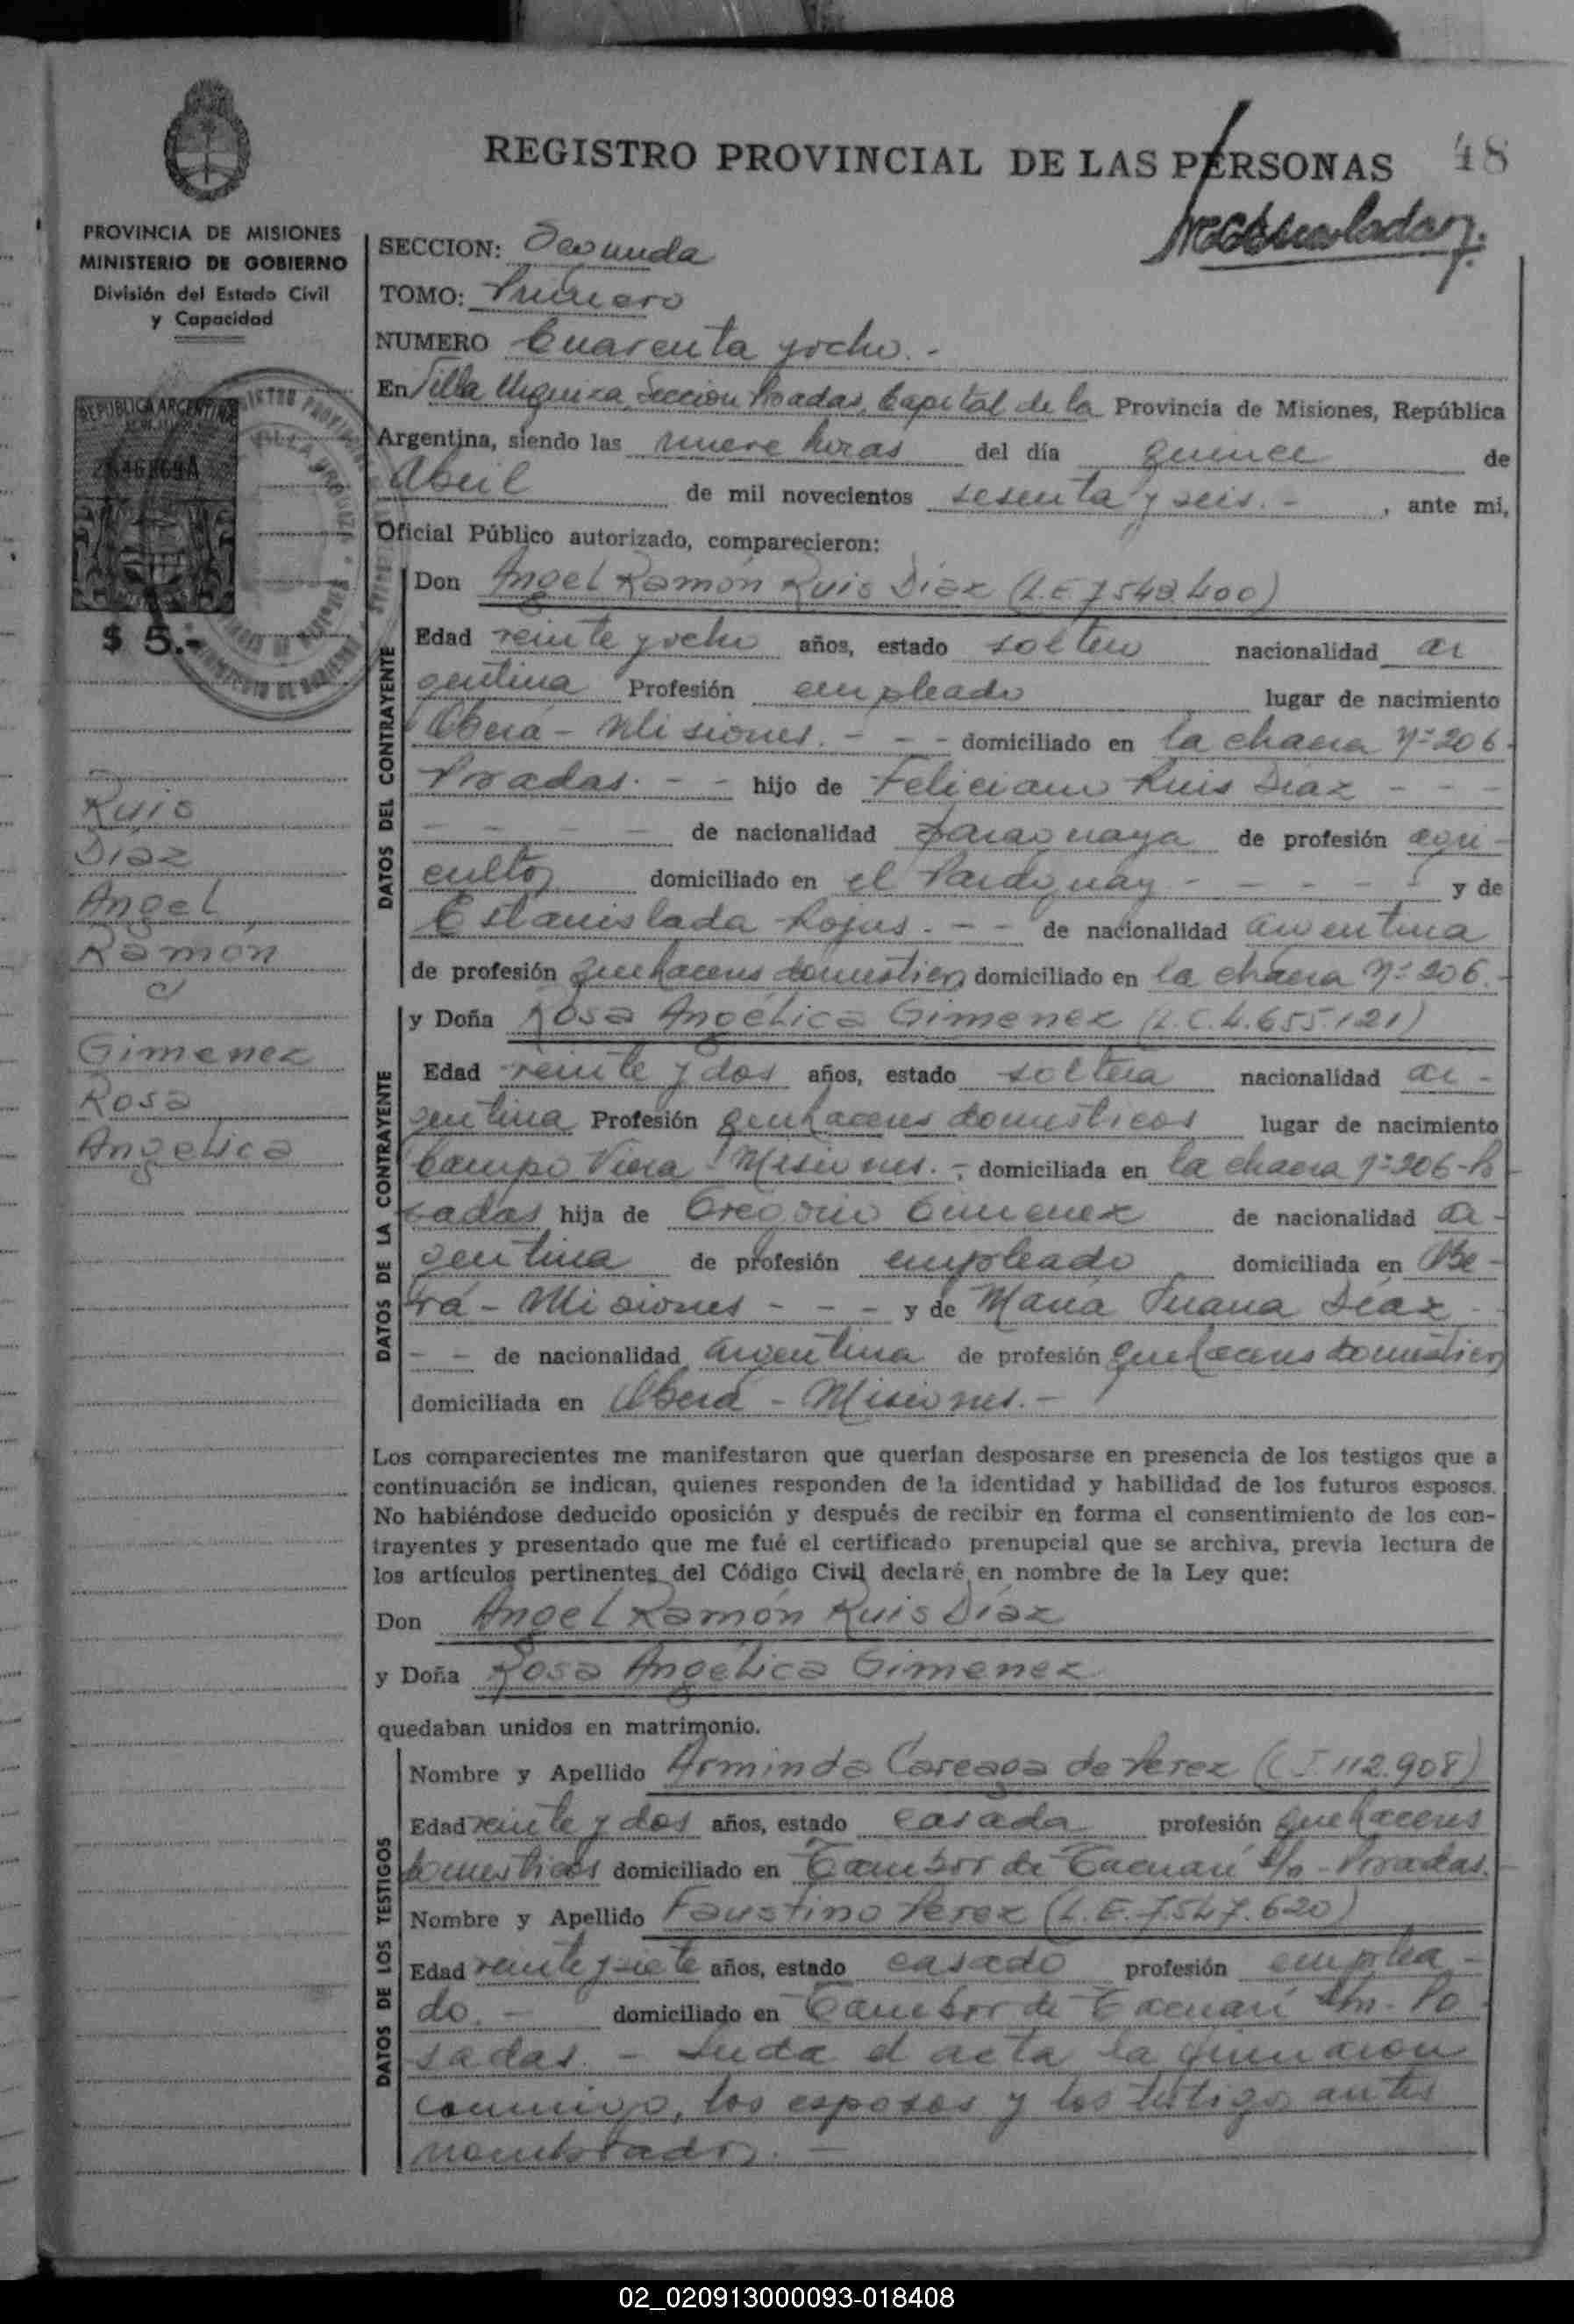 REGISTRO PROVINCIAL DE LAS PERSONAS 48
PROVINCIA DE MISIONES
MINISTERIO DE GOBIERNO
División del Estado Civil
y Capacidad
REPUBLICA ARGENTINA
$ 5.-
Ruis
Díaz
Angel
Ramón
c/
Gimenez
Rosa
Angelica
SECCION: Segunda
TOMO: Primero
NUMERO Cuarenta y ocho.-
En Villa Urquiza, Sección Posadas, Capital de la Provincia de Misiones, República
Argentina, siendo las nueve horas del día quince de
Abril de mil novecientos sesenta y seis.- , ante mi,
Oficial Público autorizado, comparecieron:
DATOS DEL CONTRAYENTE
Don Angel Ramón Ruis Díaz (L.E 7.542.400)
Edad veinte y ocho años, estado soltero nacionalidad ar
gentina Profesión empleado lugar de nacimiento
Oberá - Misiones. - - - domiciliado en la chacra Nº 206
Posadas. - - hijo de Feliciano Ruis Díaz - - -
- - - - de nacionalidad paraguaya de profesión agri-
cultor domiciliado en el Paraguay - - - - - y de
Estanislada Rojas. - - de nacionalidad argentina
de profesión quehaceres domésticos domiciliado en la chacra Nº 206.-
DATOS DE LA CONTRAYENTE
y Doña Rosa Angélica Gimenez (L.C.4.655.121)
Edad veinte y dos años, estado soltera nacionalidad ar-
gentina Profesión quehaceres domésticos lugar de nacimiento
Campo Viera - Misiones. - domiciliada en la chacra Nº 206-Po
sadas hija de Gregorio Gimenez de nacionalidad ar-
gentina de profesión empleado domiciliada en Obe-
rá - Misiones - - - y de María Juana Díaz -
- - de nacionalidad argentina de profesión quehaceres domésticos
domiciliada en Oberá - Misiones.-
Los comparecientes me manifestaron que querían desposarse en presencia de los testigos que a
continuación se indican, quienes responden de la identidad y habilidad de los futuros esposos.
No habiéndose deducido oposición y después de recibir en forma el consentimiento de los con-
trayentes y presentado que me fué el certificado prenupcial que se archiva, previa lectura de
los artículos pertinentes del Código Civil declaré en nombre de la Ley que:
Don Angel Ramón Ruis Díaz
y Doña Rosa Angélica Gimenez
quedaban unidos en matrimonio.
DATOS DE LOS TESTIGOS
Nombre y Apellido Arminda Careaga de Perez (C.I. 112.908)
Edad veinte y dos años, estado casada profesión quehaceres
domésticos domiciliado en Tambor de Tacuarí s/n - Posadas.
Nombre y Apellido Faustino Perez (L.E. 7.547.620)
Edad veinte y siete años, estado casado profesión emplea-
do. - domiciliado en Tambor de Tacuarí s/n. Po
sadas. - Leida el acta la firmaron
conmigo, los esposos y los testigos antes
nombrados. -
02_020913000093-018408